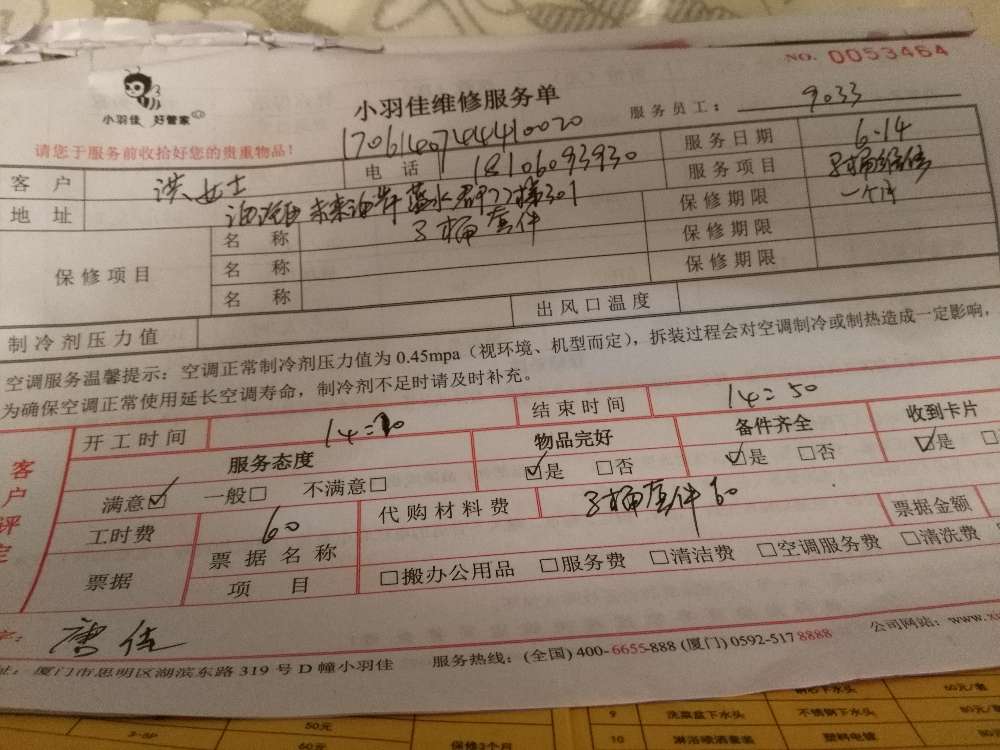 NO. 0053464
小羽佳 好管家
小羽佳维修服务单
服务员工： 9033
请您于服务前收拾好您的贵重物品！
客 户 洪女士 电 话 18106093930 服务日期 6.14
地 址 未来海岸蓝水郡 301 服务项目 马桶维修
保修项目 名 称 马桶套件 保修期限 一个月
名 称 保修期限
名 称 保修期限
制冷剂压力值 出风口温度
空调服务温馨提示：空调正常制冷剂压力值为 0.45mpa（视环境、机型而定），拆装过程会对空调制冷或制热造成一定影响，
为确保空调正常使用延长空调寿命，制冷剂不足时请及时补充。
客户评定
开工时间 结束时间 14=50
服务态度 物品完好 备件齐全 收到卡片
满意☑ 一般□ 不满意□ ☑是 □否 ☑是 □否 ☑是 □
工时费 60 代购材料费 马桶套件60 票据金额
票据 票据名称
项 目 □搬办公用品 □服务费 □清洁费 □空调服务费 □清洗费
字：
址：厦门市思明区湖滨东路 319 号 D 幢小羽佳 服务热线：(全国) 400-6655-888 (厦门) 0592-517 8888 公司网站：www.x
50元
60元 保修3个月
9 洗菜盆下水头 不锈钢下水头
10 淋浴喷洒套装 塑料电镀